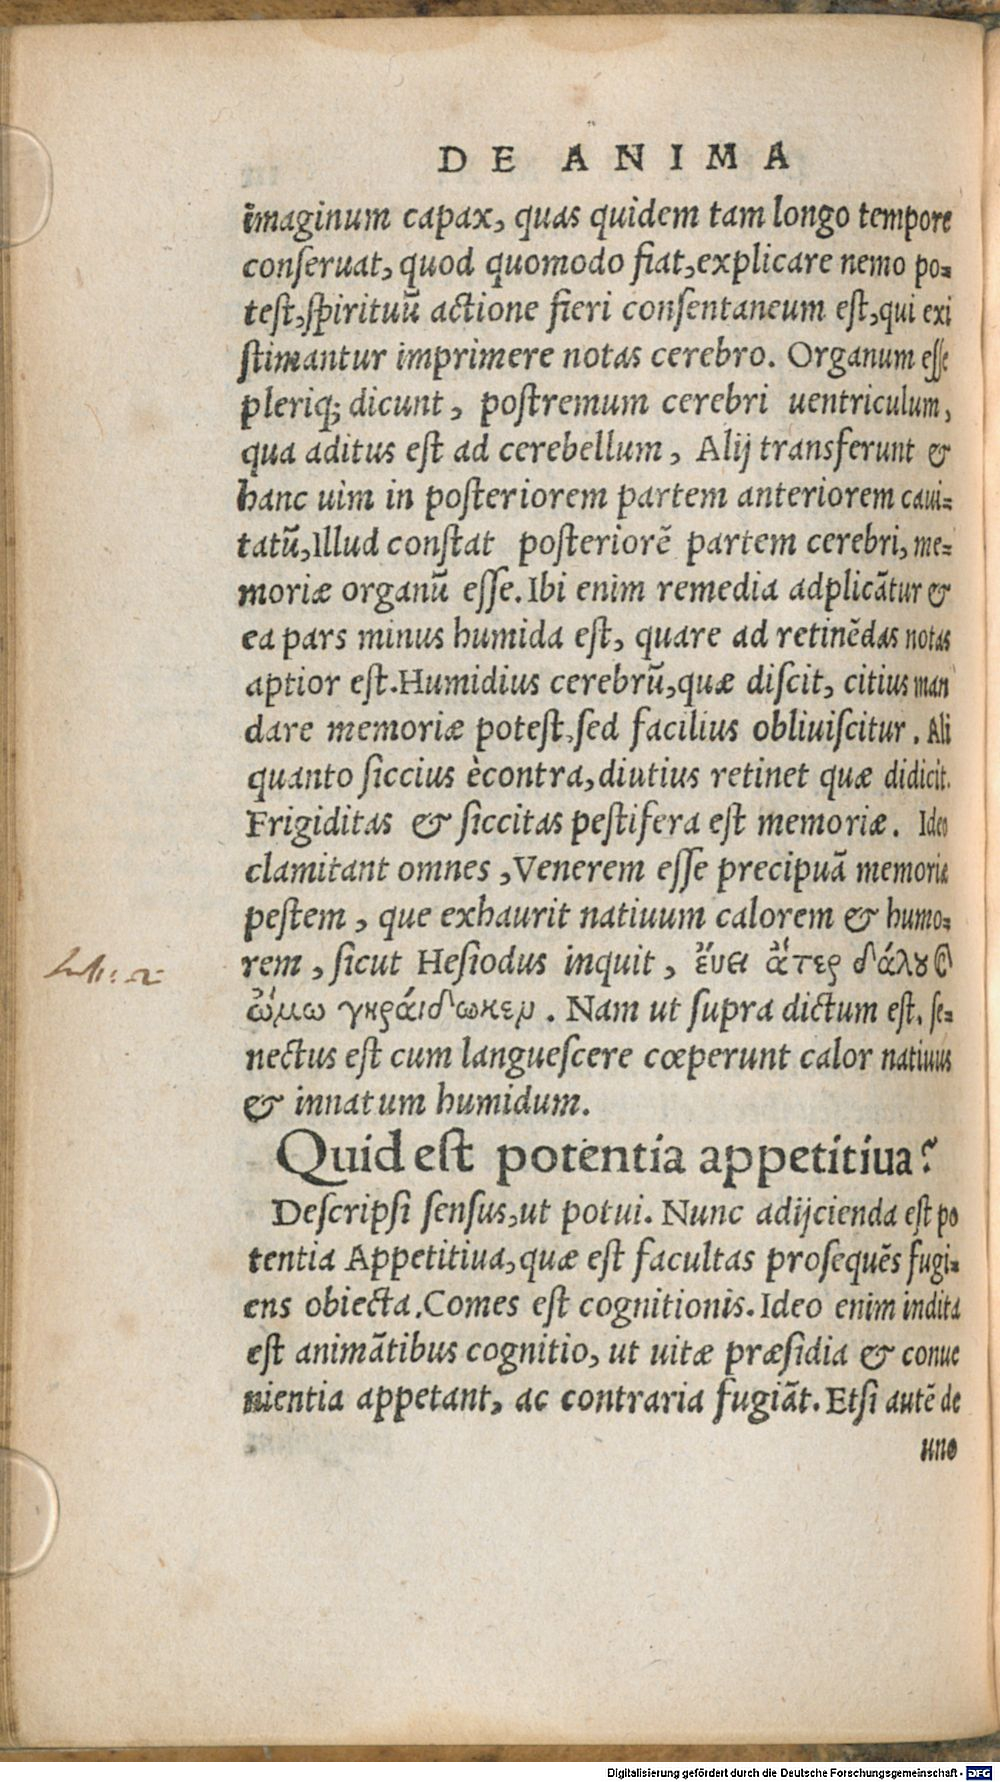 DE ANIMA
imaginum capax, quas quidem tam longo tempore
conſeruat, quod quomodo fiat, explicare nemo po-
teſt, ſpirituũ actione fieri conſentaneum eſt, qui exi
ſtimantur imprimere notas cerebro. Organum eſſe
pleriq; dicunt, poſtremum cerebri uentriculum,
qua aditus eſt ad cerebellum, Alij transferunt &
hanc uim in poſteriorem partem anteriorem caui-
tatũ, Illud conſtat poſteriorẽ partem cerebri, me-
moriæ organũ eſſe. Ibi enim remedia adplicãtur &
ea pars minus humida eſt, quare ad retinẽdas notas
aptior eſt. Humidius cerebrũ, quæ diſcit, citius man
dare memoriæ poteſt, ſed facilius obliuiſcitur. Ali
quanto ſiccius ècontra, diutius retinet quæ didicit.
Frigiditas & ſiccitas peſtifera eſt memoriæ. Ideo
clamitant omnes, Venerem eſſe precipuã memoriæ
peſtem, que exhaurit natiuum calorem & humo-
rem, ſicut Heſiodus inquit, ἔυει ἄτερ δάλου
ὤμω γηράιδωκεν. Nam ut ſupra dictum eſt, ſe-
nectus eſt cum langueſcere cœperunt calor natiuus
& innatum humidum.
Quid eſt potentia appetitiua?
Deſcripſi ſenſus, ut potui. Nunc adijcienda eſt po
tentia Appetitiua, quæ eſt facultas proſequẽs fugi-
ens obiecta. Comes eſt cognitionis. Ideo enim indita
eſt animãtibus cognitio, ut uitæ præſidia & conue
nientia appetant, ac contraria fugiãt. Etſi autẽ de
uno
Digitalisierung gefördert durch die Deutsche Forschungsgemeinschaft - DFG